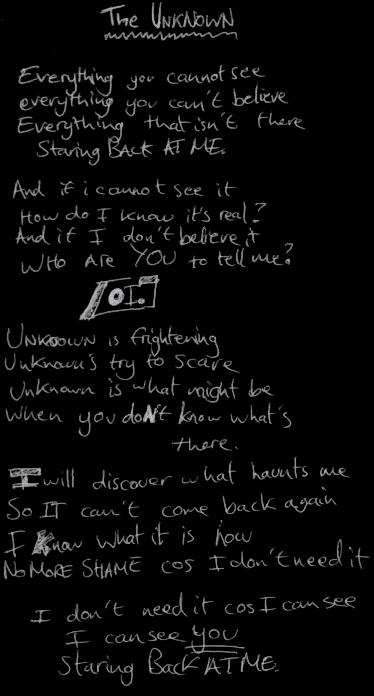 The UNKNOWN
Everything you cannot see
everything you can't believe
Everything that isn't there
Staring BACK AT ME.
And if i cannot see it
How do I know it's real?
And if I don't believe it
WHO ARE YOU to tell me?
UNKNOWN is frightening
Unknown's try to scare
Unknown is what might be
When you doN't know what's
there.
I will discover what haunts me
So IT can't come back again
I Know what it is now
NO MORE SHAME cos I don't need it
I don't need it cos I can see
I can see YOU
Staring Back AT ME.